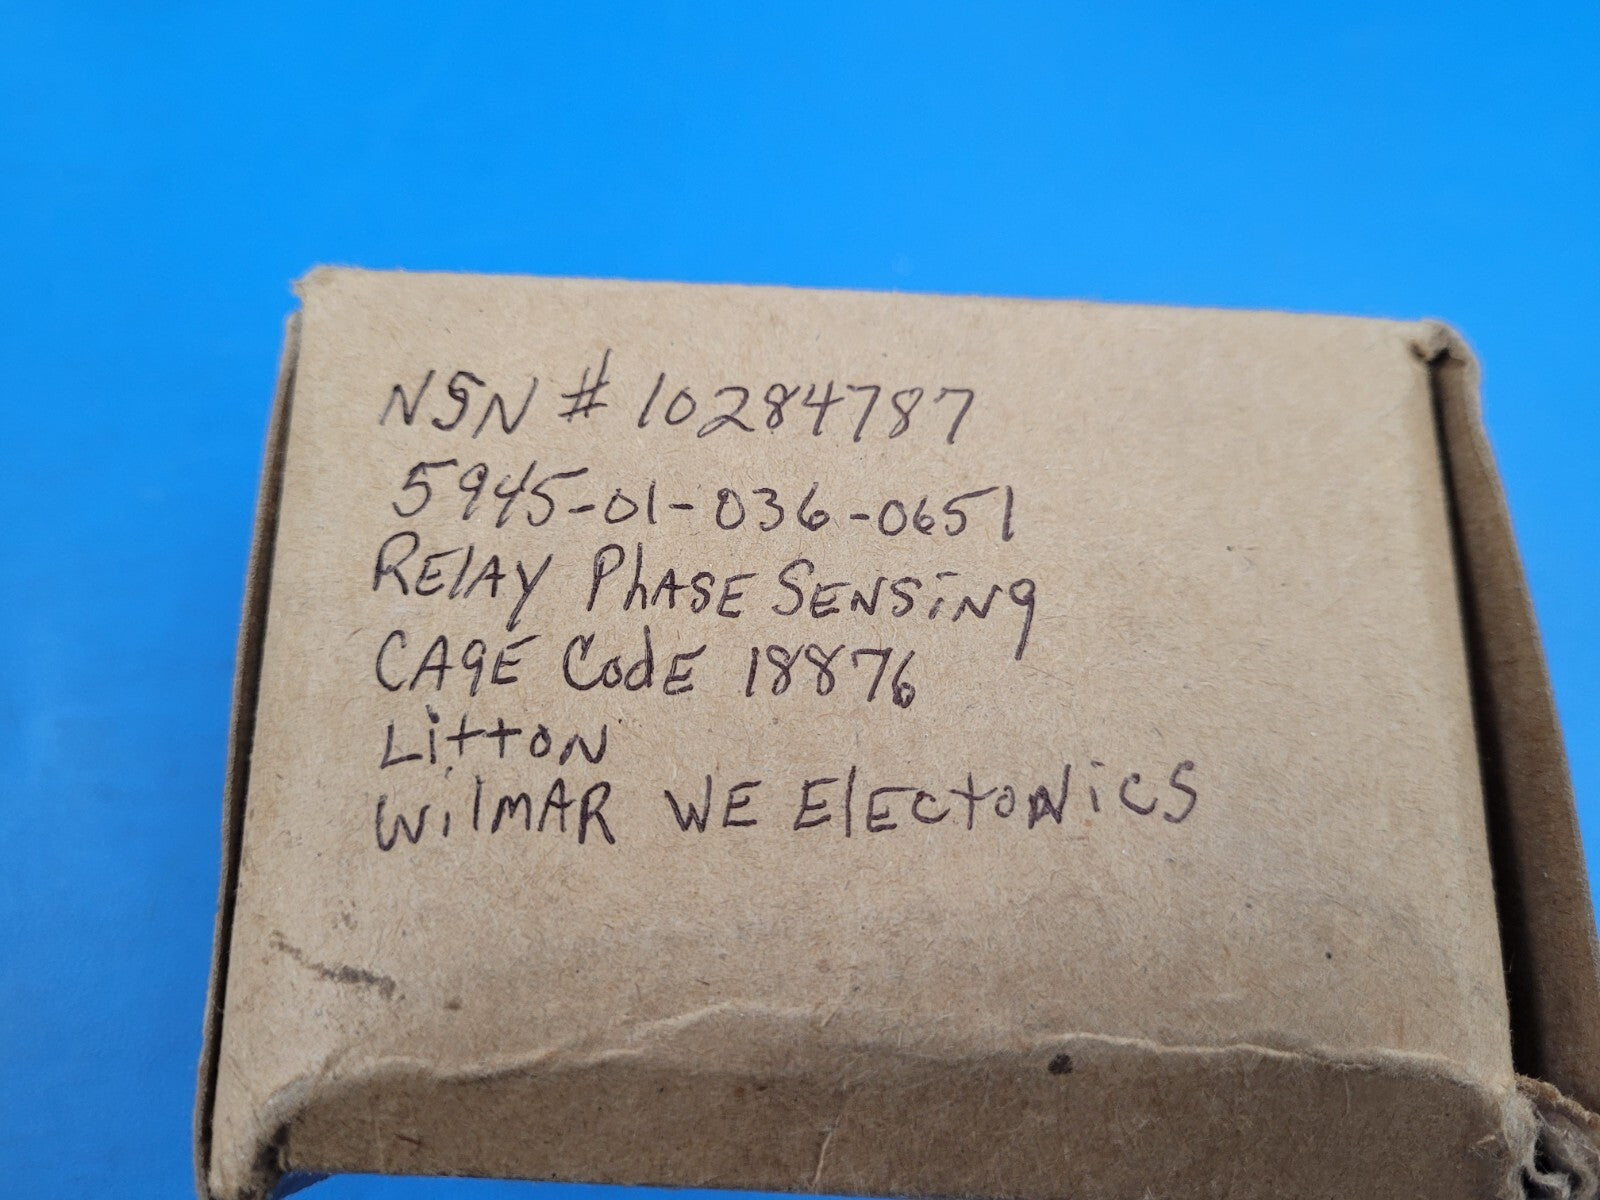 NSN # 10284787
5945-01-036-0651
RElAY PhASE SENSiNg
CAgE CodE 18876
LittoN
WilMAR WE ElECtoNiCS